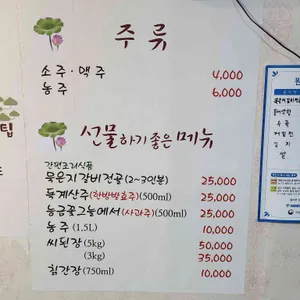 주류
소주·맥주 4,000
농주 6,000
선물하기 좋은 메뉴
간편조리식품
묵은지갈비전골(2~3인분) 25,000
득계산주(한방발효주)(500ml) 25,000
능금꽃그늘에서(사과주)(500ml) 25,000
농주(1.5L) 10,000
씨된장(5kg) 50,000
(3kg) 35,000
집간장(750ml) 10,000
팁